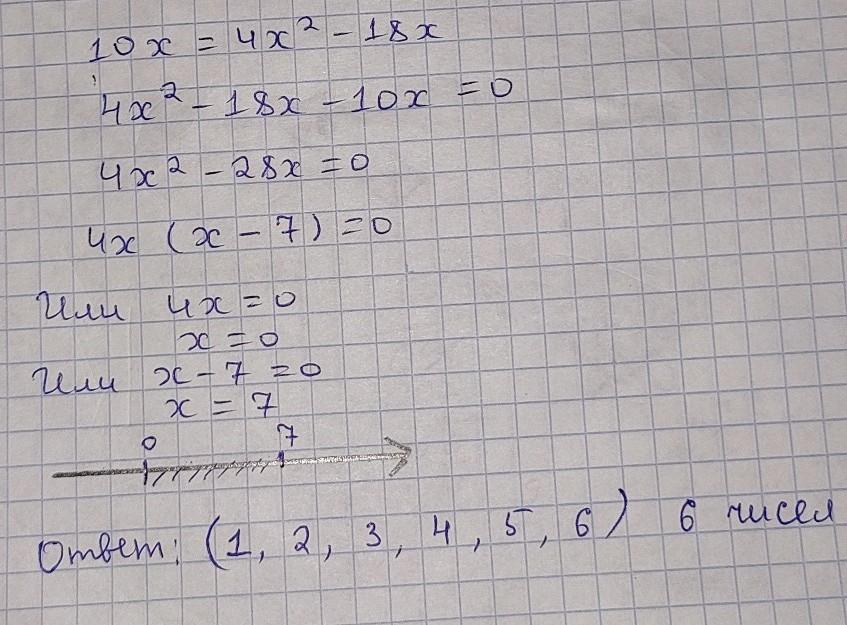 10x = 4x² - 18x
4x² - 18x - 10x = 0
4x² - 28x = 0
4x (x - 7) = 0
Или 4x = 0
x = 0
Или x - 7 = 0
x = 7
0 7
Ответ: (1, 2, 3, 4, 5, 6) 6 чисел